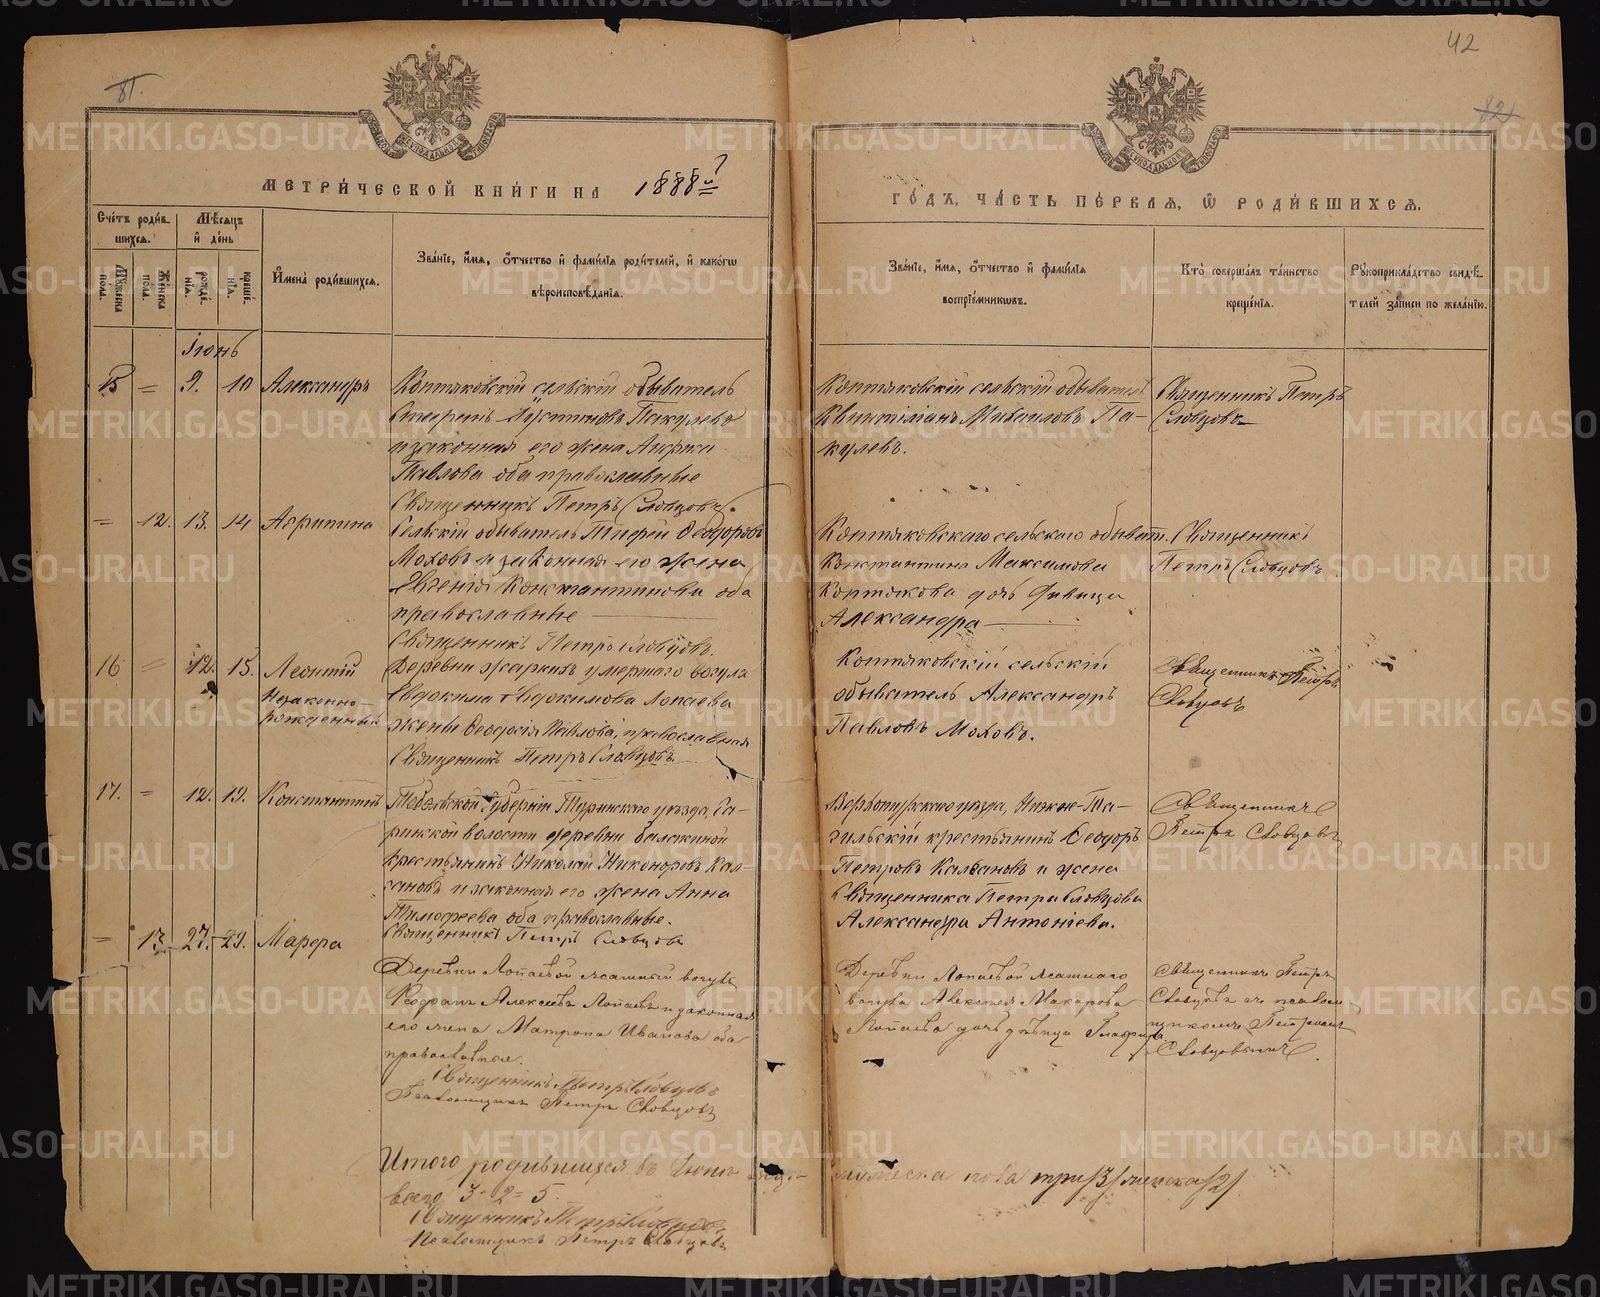 42
81.
82
МЕТРИ́ЧЕСКОЙ КНИ́ГИ НА 1888й
ГО́ДЪ, ЧА́СТЬ ПЕ́РВАЯ, Ѿ РОДИ́ВШИХСЯ.
Сче́тъ роди́в-
шихся.
Мѣ́сяцъ
и҆ де́нь
Мꙋ́жеска
пола.
Же́нска
пола.
рожде́-
нїя.
креще́-
нїя.
И҆мена̀ роди́вшихся.
Зва́нїе, и҆́мя, ѻ҆́тчество и҆ фамѝлїѧ роди́телей, и҆ како́гѡ
вѣроисповѣ́данїя.
Зва́нїе, и҆́мя, ѻ҆́тчество и҆ фамѝлїѧ
воспрїе́мникѡвъ.
Кто̀ соверша́лъ та́инство
креще́нїя.
Рꙋкоприкла́дство свидѣ́-
телей за́писи по жела́нїю.
Іюнь
15 = 9. 10 Александръ
Коптяковскій сельскій обыватель
Устиновъ Пакулевъ
и законная его жена
Павлова оба православные
Священникъ Петръ Словцовъ.
Коптяковскій сельскій обыватель
Михаиловъ Па-
кулевъ.
Священникъ Петръ
Словцовъ
= 12. 13. 14 Агрипина
Сельскій обыватель Ѳеодоровъ
Моховъ и законная его жена
Евгенія Константинова оба
православные
Священникъ Петръ Словцовъ.
Коптяковскаго сельскаго обыват.
Константина Максимова
Коптякова дочь девица
Александра
Священникъ
Петръ Словцовъ
16 = 12. 15. Леонтій
Незаконно-
рожденный
Деревни умершаго вогула
Евдокима Евдокимова Лопаева
жены Ѳеодосія Павлова, православная
Священникъ Петръ Словцовъ
Коптяковскій сельскій
обыватель Александръ
Павловъ Моховъ.
Священникъ Петръ
Словцовъ
17. = 12. 19. Константинъ
Тобольской Губерніи Туринскаго уезда, Га-
ринской волости деревни Балакиной
крестьянинъ Николай Никоноровъ Кал-
гановъ и законная его жена Анна
Тимофеева оба православные.
Священникъ Петръ Словцовъ
Верхотурскаго уезда, Нижне-Та-
гильскій крестьянинъ Ѳеодоръ
Петровъ и жена
Священника Петра Словцова
Александра Антоніева.
Священникъ
Петръ Словцовъ
= 13. 27. 29. Марфа
Деревни Лопаевой ясашный вогулъ
Алексеевъ Лопаевъ и законная
его жена Матрона Иванова оба
православные.
Священникъ Петръ Словцовъ
Псаломщикъ Петръ Словцовъ
Деревни Лопаевой ясашнаго
вогула Алексея Макарова
Лопаева дочь девица Глафира
Священникъ Петръ
Словцовъ съ псалом-
щикомъ Петромъ
Словцовымъ.
Итого родившихся въ Іюне мужеска пола три /3/ женска /2/
всего 3-2=5.
Священникъ Петръ Словцовъ
Псаломщикъ Петръ Словцовъ
METRIKI.GASO-URAL.RU